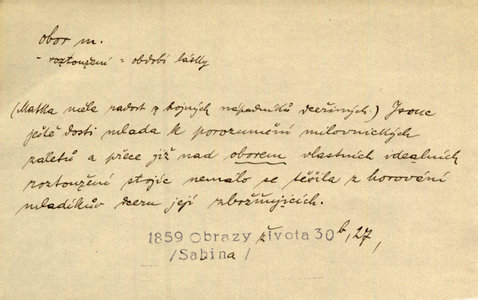 obor m.
- roztoužení = období lásky
(Matka měla radost z hojných nápadníků dceřiných) Jsouc
ještě dosti mlada k porozumění milovnických
zaletů a přece již nad oborem vlastních idealních
roztoužení stojíc nemálo se těšila z horování
mladíkův dceru její zbožňujících.
1859 Obrazy života 30b, 27,
/Sabina/